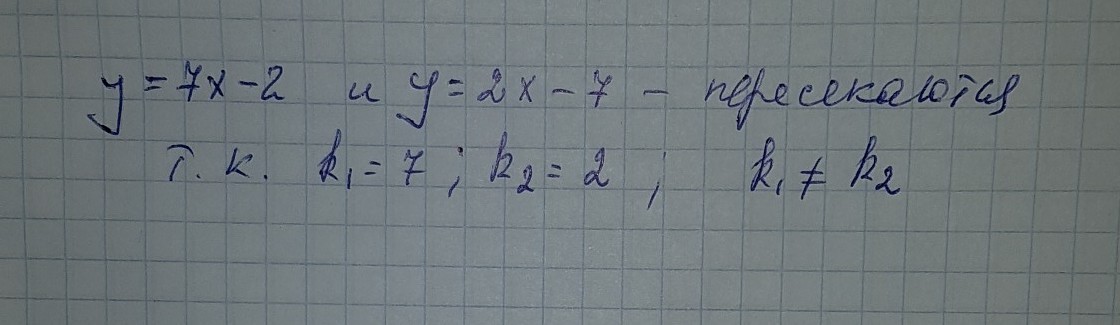 y = 7x - 2 и y = 2x - 7 - пересекаются
т. к. k₁ = 7 ; k₂ = 2 ; k₁ ≠ k₂